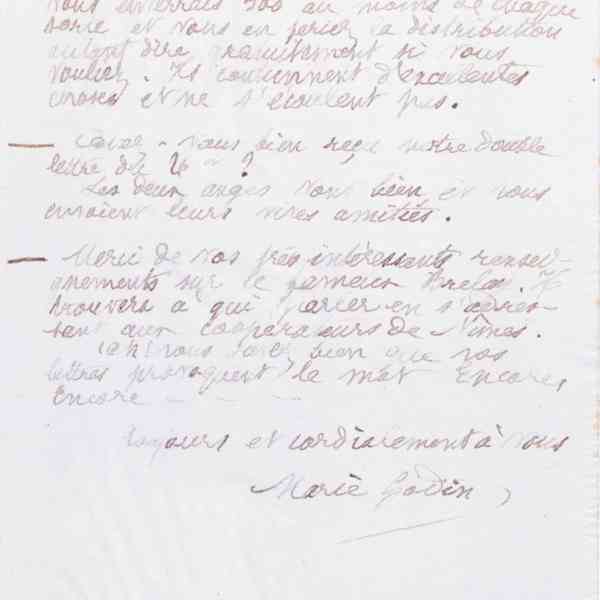 vous enverrais 500 au moins de chaque
sorte et vous en feriez la distribution
dire gratuitement si vous
vouliez. Ils contiennent d'excellentes
choses et ne s'écoulent pas.
— vous bien reçu notre double
lettre du 26 ?
Les deux anges vont bien et vous
envoient leurs vives amitiés.
— Merci de vos très intéressants rensei-
gnements sur le fameux .
trouvera à qui parler en s'adres-
sant aux coopérateurs de Nîmes.
vous savez bien que vos
lettres provoquent le mot Encore,
Encore - - -
Toujours et cordialement à vous
Marie Godin